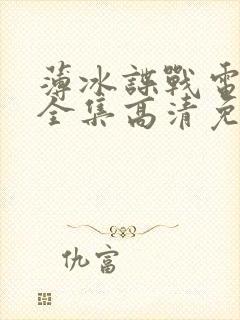 薄冰諜戰電
全集高清免
仇富